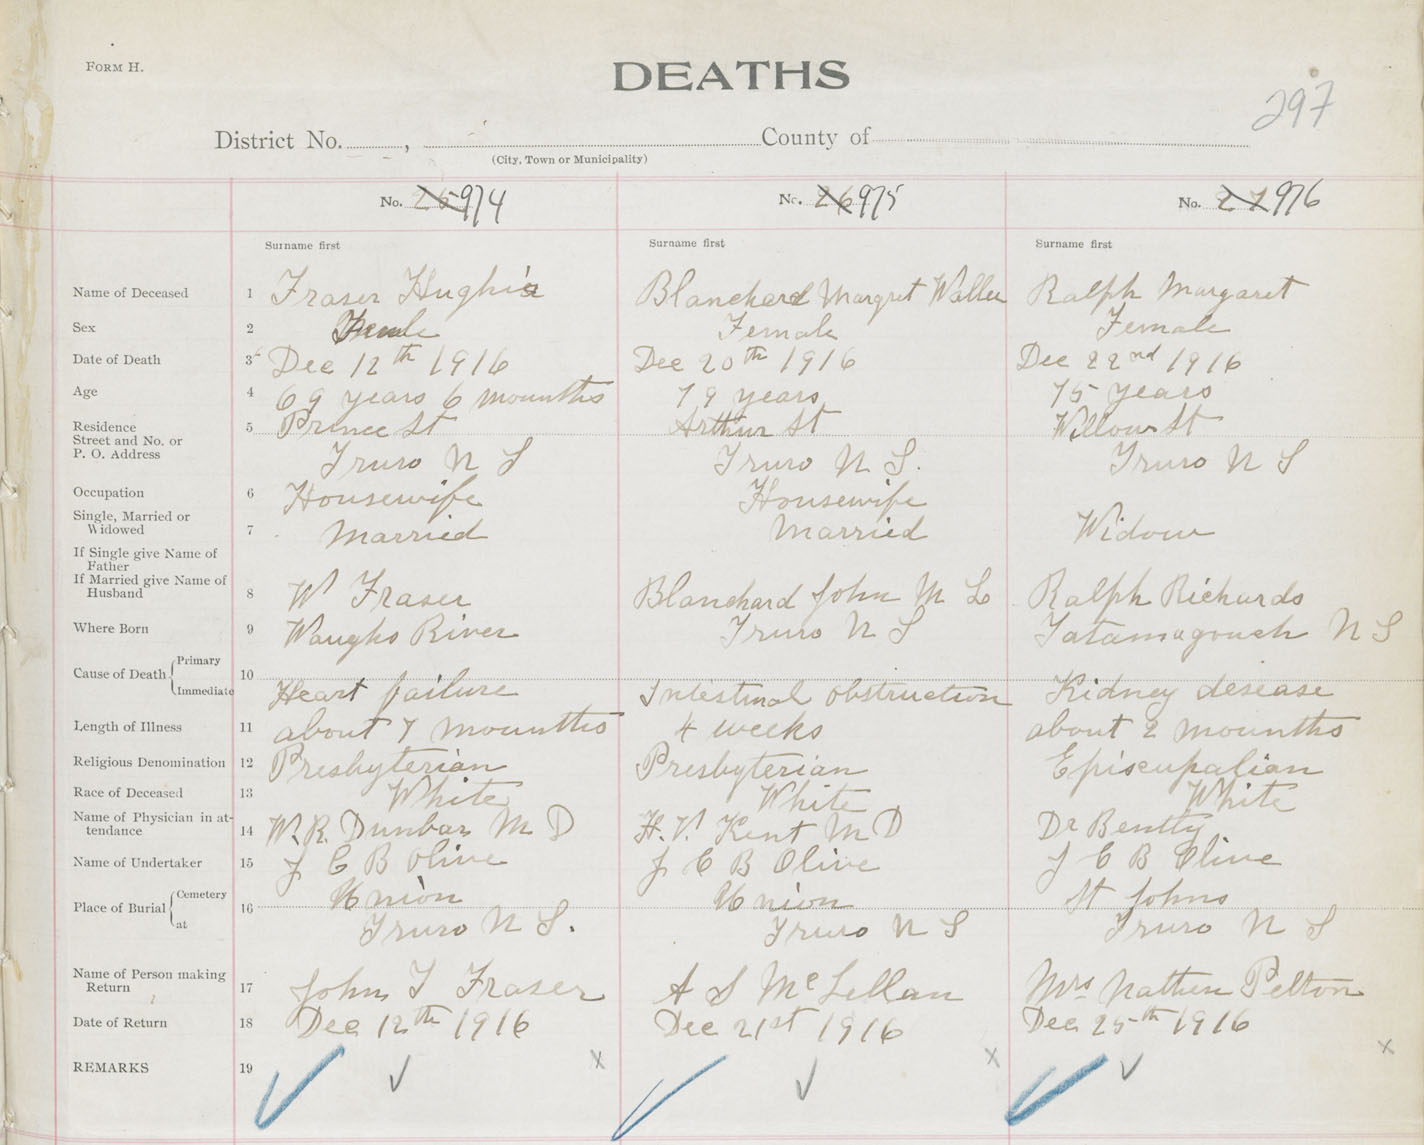 FORM H.
DEATHS
297
District No. , County of
(City, Town or Municipality)
No. 25 974 No. 26 975 No. 27 976
Surname first Surname first Surname first
Name of Deceased 1 Fraser Hughia Blanchard Margret Waller Ralph Margaret
Sex 2 Female Female
Date of Death 3 Dec 12th 1916 Dec 20th 1916 Dec 22nd 1916
Age 4 69 years 6 mounths 79 years 75 years
Residence
Street and No. or 5 Prince St Arthur St Willow St
P. O. Address Truro N S Truro N S. Truro N S
Occupation 6 Housewife Housewife
Single, Married or
Widowed 7 Married Married Widow
If Single give Name of
Father
If Married give Name of
Husband 8 W Fraser Blanchard John M L Ralph Richards
Where Born 9 Waughs River Truro N S Tatamagouch N S
Cause of Death Primary 10
Immediate Heart failure Intestinal obstruction Kidney desease
Length of Illness 11 about 7 mounths 4 weeks about 2 mounths
Religious Denomination 12 Presbyterian Presbyterian Episcupalian
Race of Deceased 13 White White White
Name of Physician in at-
tendance 14 W. R. Dunbar M D H. V. Kent M D Dr Bentty
Name of Undertaker 15 J C B Olive J C B Olive J C B Olive
Place of Burial Cemetery 16 Union Union St Johns
at Truro N S. Truro N S Truro N S
Name of Person making
Return 17 John T Fraser A S McLellan Mrs Nathen Pelton
Date of Return 18 Dec 12th 1916 Dec 21st 1916 Dec 25th 1916
REMARKS 19